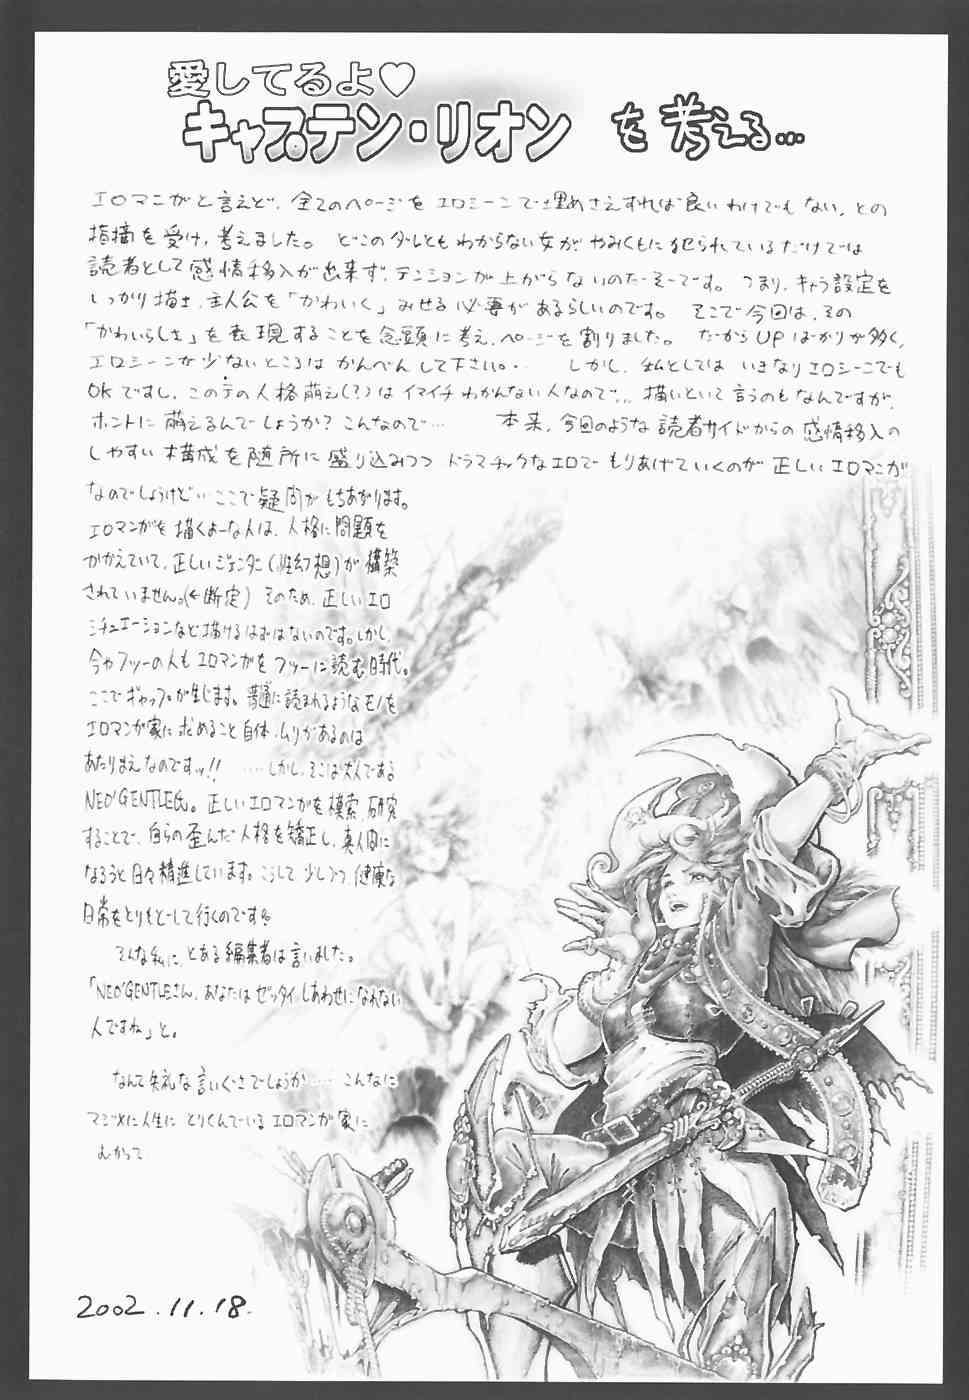 愛してるよ♡
キャプテン・リオン を考える…
エロマンガと言えど、全てのページをエロシーンで埋めさえすれば良いわけでもない、との
指摘を受け、考えました。 どこのダレともわからない女が やみくもに犯られているだけでは
読者として感情移入が出来ず、テンションが上がらないのだそーです。 つまり、キャラ設定を
しっかり描き、主人公を「かわいく」みせる必要があるらしいのです。 そこで今回は、その
「かわいらしさ」を表現することを念頭に考え、ページを割りました。 だからUPばかりが多く、
エロシーンが少ないところは かんべんして下さい。‥ しかし、私としては いきなりエロシーンでも
OKですし、このテの人格萌え(?)は イマイチわかんない人なので… 描いといて言うのもなんですが、
ホントに萌えるんでしょうか? こんなので… 本来、今回のような 読者サイドからの 感情移入の
しやすい構成を随所に盛り込みつつ ドラマチックなエロで もりあげていくのが 正しいエロマンガ
なのでしょうけど‥ ここで疑問がもちあがります。
エロマンガを描くよーな人は、人格に問題を
かかえていて、正しいジェンダー(性幻想)が構築
されていません。(←断定) そのため、正しいエロ
シチュエーションなど描けるはずはないのです。しかし、
今やフツーの人もエロマンガをフツーに読む時代。
ここでギャップが生じます。普通に読まれるようなモノを
エロマンガ家に求めること自体、ムリがあるのは
あたりまえなのですッ!! ……しかし、そこは大人である
NEO'GENTLE氏。正しいエロマンガを模索、研究
することで、自らの歪んだ人格を矯正し、真人間に
なろうと日々精進しています。こうして少しづつ健康な
日常をとりもどして行くのです。
そんな私に、とある編集者は言いました。
「NEO'GENTLEさん、あなたはゼッタイ、しあわせになれない
人ですね」と。
なんて失礼な言いぐさでしょうか…… こんなに
マジメに人生に とりくんでいるエロマンガ家に
むかって
2002.11.18.